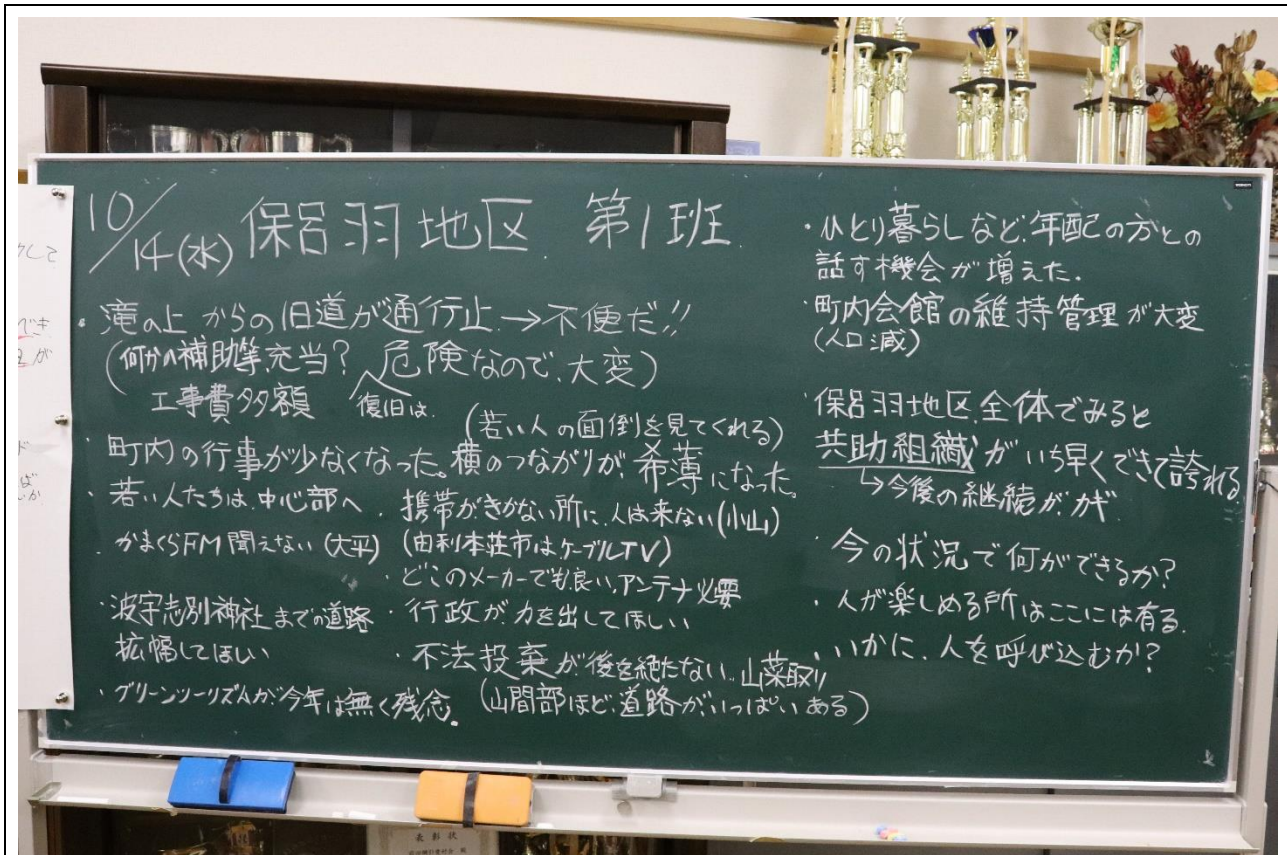 10/14(水) 保呂羽地区 第1班
・滝の上からの旧道が通行止→不便だ!!
(何かの補助等充当? 危険なので、大変)
工事費多額 復旧は、
(若い人の面倒を見てくれる)
・町内の行事が少なくなった。横のつながりが、希薄になった。
・若い人たちは、中心部へ
・かまくらFM聞えない(大平)
・波宇志別神社までの道路
拡幅してほしい
・グリーンツーリズムが、今年は無く残念。
・携帯がきかない所に、人は来ない(小山)
(由利本荘市はケーブルTV)
・どこのメーカーでも良い、アンテナ必要
・行政が力を出してほしい
・不法投棄が後を絶たない、山菜取り
(山間部ほど、道路が、いっぱいある)
・ひとり暮らしなど、年配の方との
話す機会が増えた。
・町内会館の維持管理が大変
(人口減)
・保呂羽地区全体でみると
共助組織がいち早くできて誇れる
↳今後の継続がカギ
・今の状況で何ができるか?
・人が楽しめる所はここには有る。
・いかに、人を呼び込むか?
表彰状